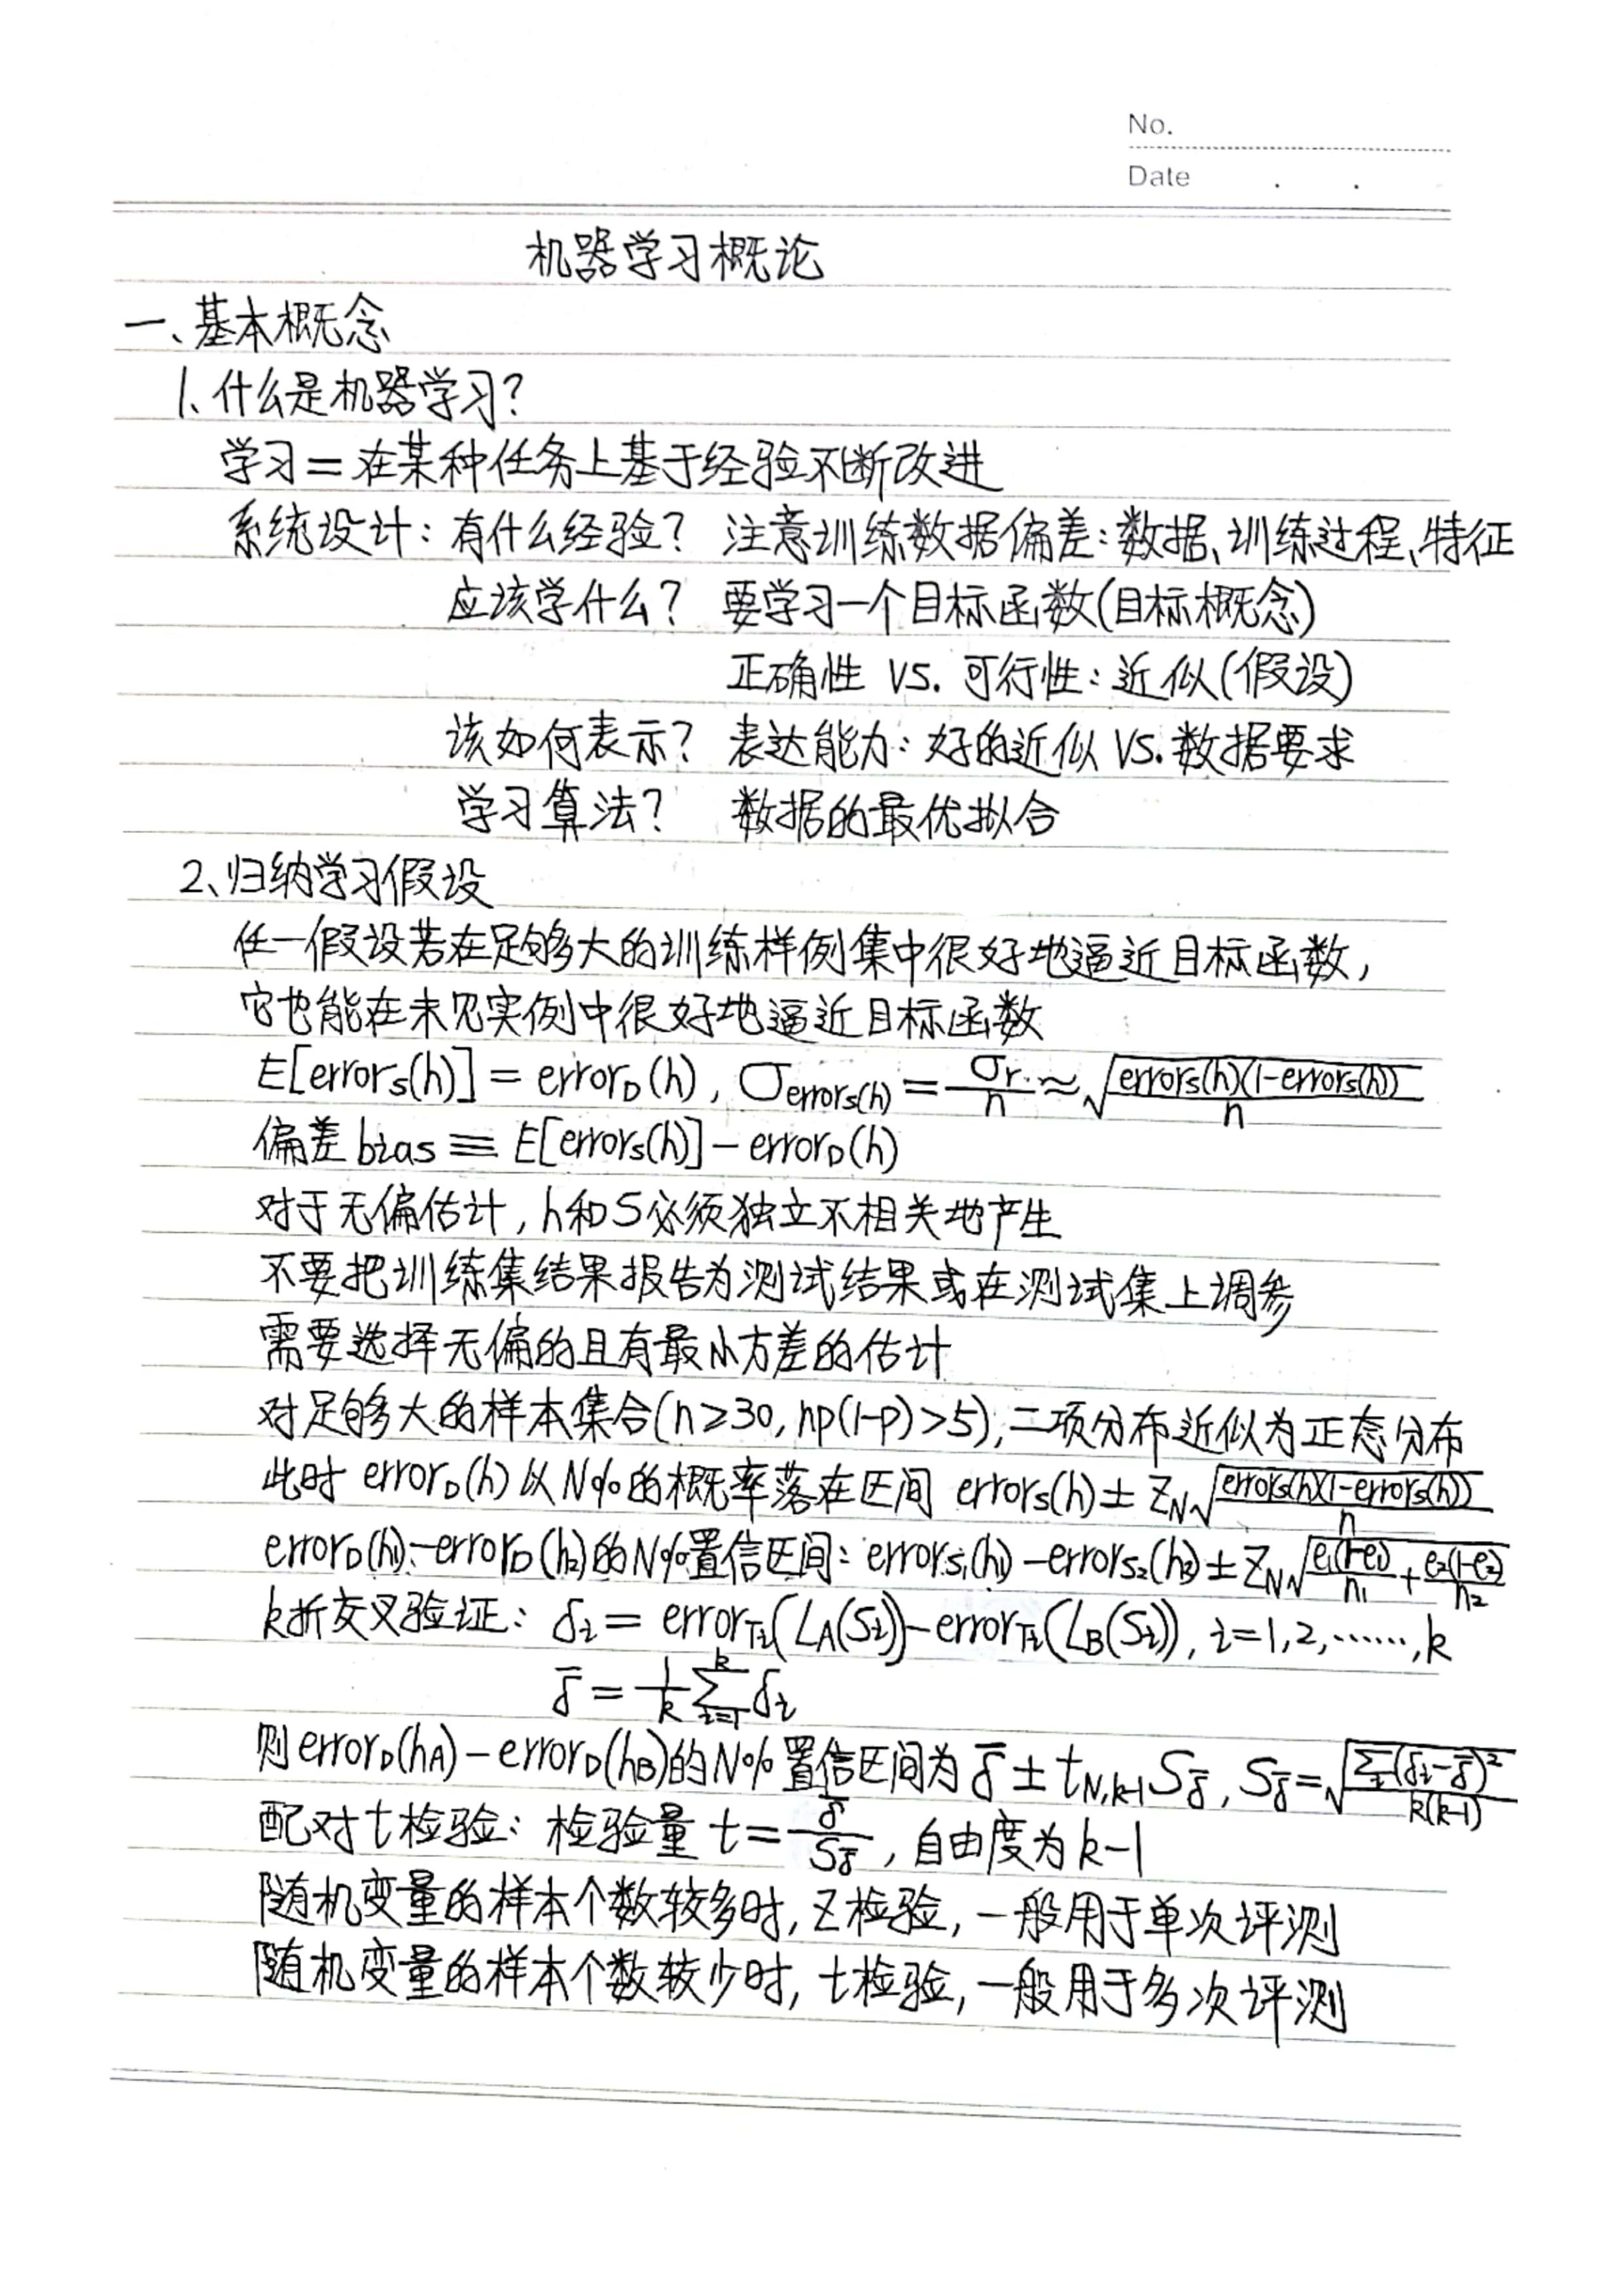 No.
Date . .
机器学习概论
一、基本概念
1、什么是机器学习?
学习=在某种任务上基于经验不断改进
系统设计: 有什么经验? 注意训练数据偏差:数据、训练过程、特征
应该学什么? 要学习一个目标函数(目标概念)
正确性 VS. 可行性:近似(假设)
该如何表示? 表达能力:好的近似 VS. 数据要求
学习算法? 数据的最优拟合
2、归纳学习假设
任一假设若在足够大的训练样例集中很好地逼近目标函数,
它也能在未见实例中很好地逼近目标函数
E[error_S(h)] = error_D(h), σ_{error_S(h)} = σ_r/n ≈ √(error_S(h)(1-error_S(h))/n)
偏差 bias ≡ E[error_S(h)] - error_D(h)
对于无偏估计, h和S必须独立不相关地产生
不要把训练集结果报告为测试结果或在测试集上调参
需要选择无偏的且有最小方差的估计
对足够大的样本集合(n≥30, np(1-p)>5),二项分布近似为正态分布
此时 error_D(h) 以N%的概率落在区间 error_S(h) ± Z_N √(error_S(h)(1-error_S(h))/n)
error_D(h₁)-error_D(h₂)的N%置信区间: error_{S₁}(h₁) - error_{S₂}(h₂) ± Z_N √(e₁(1-e₁)/n₁ + e₂(1-e₂)/n₂)
k折交叉验证: δ_i = error_{T_i}(L_A(S_i)) - error_{T_i}(L_B(S_i)), i=1,2,……,k
δ̄ = 1/k ∑_{i=1}^{k} δ_i
则error_D(h_A) - error_D(h_B)的N%置信区间为 δ̄ ± t_{N,k-1} S_δ̄, S_δ̄ = √(∑_i(δ_i-δ̄)²/k(k-1))
配对t检验: 检验量 t = δ̄/S_δ̄, 自由度为 k-1
随机变量的样本个数较多时, Z检验, 一般用于单次评测
随机变量的样本个数较少时, t检验, 一般用于多次评测